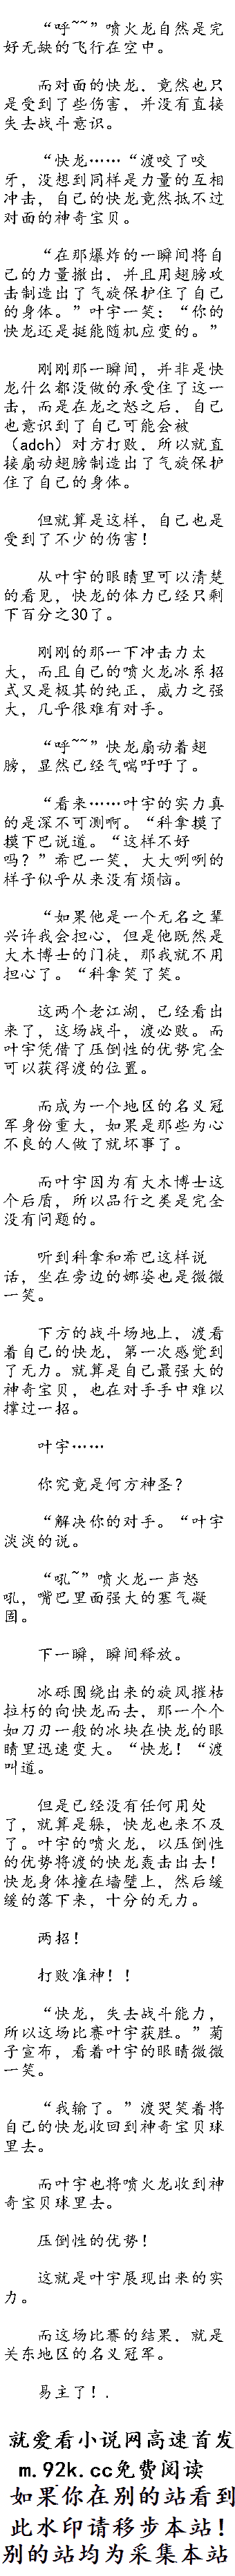 “呼~~”喷火龙自然是完
好无缺的飞行在空中。
而对面的快龙，竟然也只
是受到了些伤害，并没有直接
失去战斗意识。
“快龙……“渡咬了咬
牙，没想到同样是力量的互相
冲击，自己的快龙竟然抵不过
对面的神奇宝贝。
“在那爆炸的一瞬间将自
己的力量搬出，并且用翅膀攻
击制造出了气旋保护住了自己
的身体。”叶宇一笑：“你的
快龙还是挺能随机应变的。”
刚刚那一瞬间，并非是快
龙什么都没做的承受住了这一
击，而是在龙之怒之后，自己
也意识到了自己可能会被
（adch）对方打败，所以就直
接扇动翅膀制造出了气旋保护
住了自己的身体。
但就算是这样，自己也是
受到了不少的伤害！
从叶宇的眼睛里可以清楚
的看见，快龙的体力已经只剩
下百分之30了。
刚刚的那一下冲击力太
大，而且自己的喷火龙冰系招
式又是极其的纯正，威力之强
大，几乎很难有对手。
“呼~~”快龙扇动着翅
膀，显然已经气喘吁吁了。
“看来……叶宇的实力真
的是深不可测啊。“科拿摸了
摸下巴说道。“这样不好
吗？”希巴一笑，大大咧咧的
样子似乎从来没有烦恼。
“如果他是一个无名之辈
兴许我会担心，但是他既然是
大木博士的门徒，那我就不用
担心了。“科拿笑了笑。
这两个老江湖，已经看出
来了，这场战斗，渡必败。而
叶宇凭借了压倒性的优势完全
可以获得渡的位置。
而成为一个地区的名义冠
军身份重大，如果是那些为心
不良的人做了就坏事了。
而叶宇因为有大木博士这
个后盾，所以品行之类是完全
没有问题的。
听到科拿和希巴这样说
话，坐在旁边的娜姿也是微微
一笑。
下方的战斗场地上，渡看
着自己的快龙，第一次感觉到
了无力。就算是自己最强大的
神奇宝贝，也在对手手中难以
撑过一招。
叶宇……
你究竟是何方神圣？
“解决你的对手。“叶宇
淡淡的说。
“吼~”喷火龙一声怒
吼，嘴巴里面强大的寒气凝
固。
下一瞬，瞬间释放。
冰砾围绕出来的旋风摧枯
拉朽的向快龙而去，那一个个
如刀刃一般的冰块在快龙的眼
睛里迅速变大。“快龙！“渡
叫道。
但是已经没有任何用处
了，就算是躲，快龙也来不及
了。叶宇的喷火龙，以压倒性
的优势将渡的快龙轰击出去！
快龙身体撞在墙壁上，然后缓
缓的落下来，十分的无力。
两招！
打败准神！！
“快龙，失去战斗能力，
所以这场比赛叶宇获胜。”菊
子宣布，看着叶宇的眼睛微微
一笑。
“我输了。”渡哭笑着将
自己的快龙收回到神奇宝贝球
里去。
而叶宇也将喷火龙收到神
奇宝贝球里去。
压倒性的优势！
这就是叶宇展现出来的实
力。
而这场比赛的结果，就是
关东地区的名义冠军。
易主了！.
就爱看小说网高速首发
m.92k.cc免费阅读
如果你在别的站看到
此水印请移步本站！
别的站均为采集本站